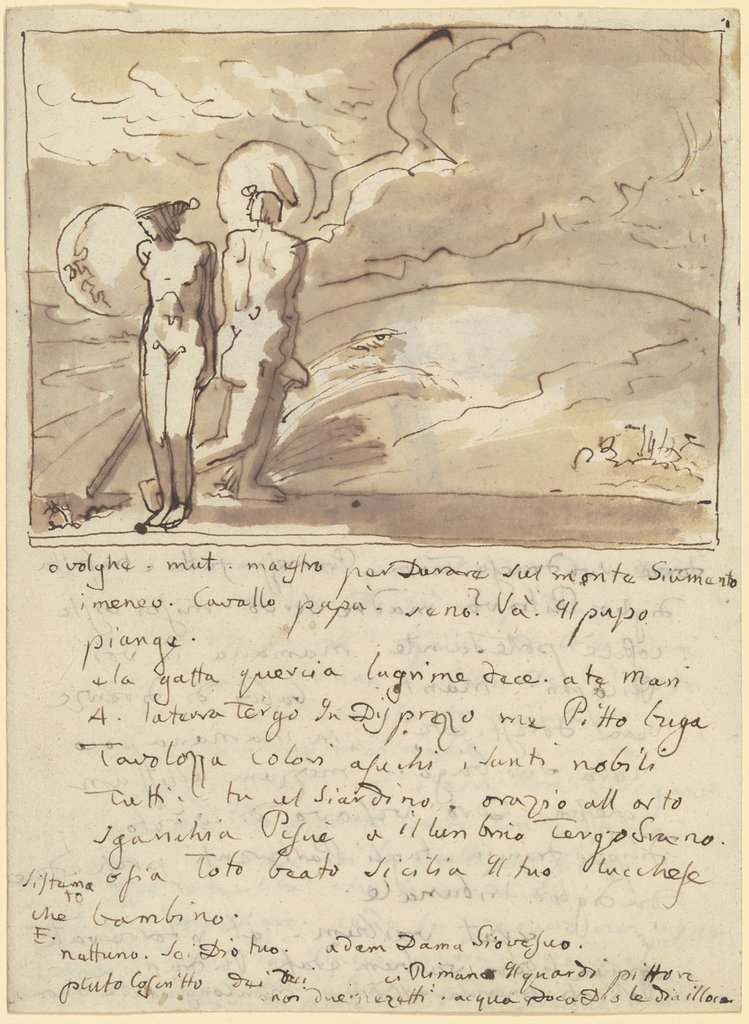 ovolghe. mut. maestro per Durare sul monte Siamento
imeneo. Cavallo papà. seno? Và. Il pupo
piange.
e la gatta quercia lagrime dece. ate mari
A. la terra Tergo In Disprezzo me Pitto briga
Tavolozza colori asechi i santi nobili
Tutti. tu al Siardino. orazio all orto
Sganchia Pesuè a il lunbrio Tergo Srano.
osia Toto beato Sicilia Il tuo lucchese
sistema
to
che bambino.
E.
nattuno. Sei Dio tuo. adam Dama Siovesuo.
pluto Coscritto dei Dei ci Rimane Il quardi pittore
noi due. pezetti. acqua Doca Dio le dia illoce